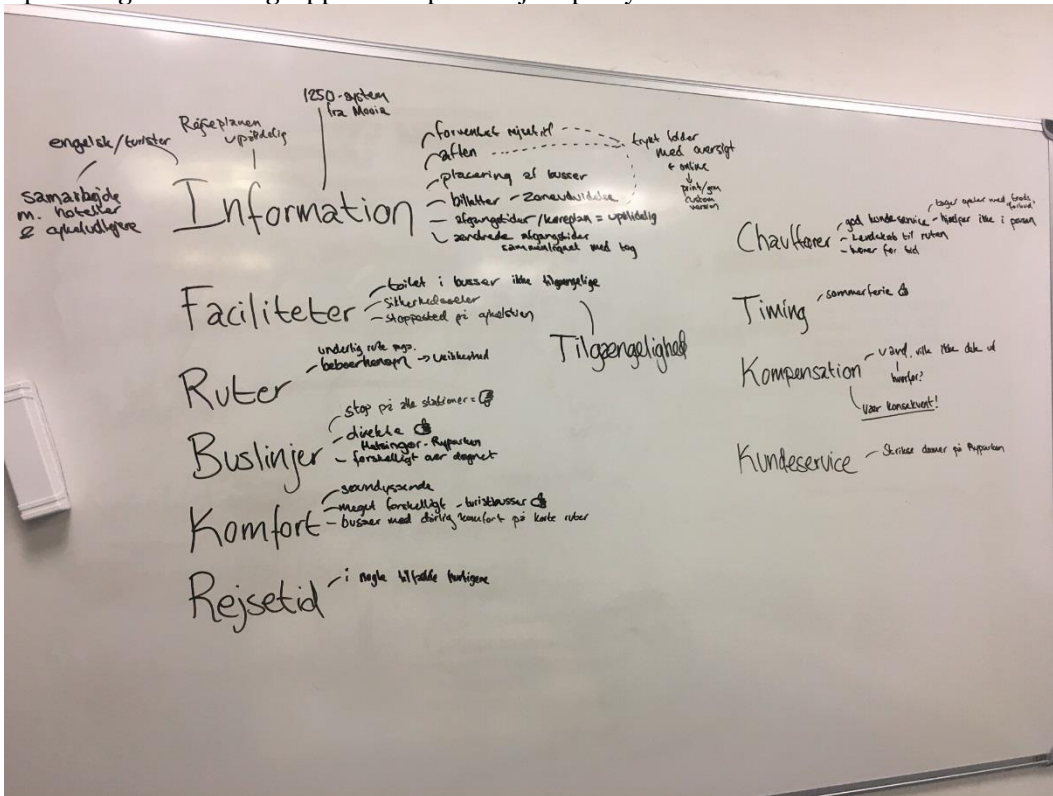 1250-system
fra Movia
Rejseplanen
upålidelig
engelsk/turister
samarbejde
m. hoteller
& cykeludlejere
Information
forventet rejsetid
aften
placering af busser
billetter - Zoneudvidelse
afgangstider/køreplan = upålidelig
ændrede afgangstider
sammenlignet med tog
trykt folder
med oversigt
+ online
print/gem
custom
version
Faciliteter
toilet i busser ikke tilgængelige
sikkerhedsseler
stoppested på cykelstien
Tilgængelighed
Ruter
underlig rute pga.
beboerhensyn → usikkerhed
Buslinjer
stop på alle stationer =
direkte
Helsingør - Ryparken
forskelligt over døgnet
Komfort
søvndyssende
meget forskelligt - turistbusser
busser med dårlig komfort på korte ruter
Rejsetid
i nogle tilfælde hurtigere
Chauffører
god kundeservice - hjælper ikke i praksis
tager cykler med trods
kendskab til ruten
kører før tid
Timing
sommerferie
Kompensation
vand, ville ikke dele ud
hvorfor?
Vær konsekvent!
Kundeservice
Strikse damer på Ryparken